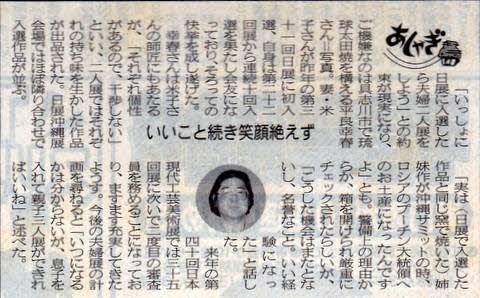 あしゃぎ
「いっしょに
日展に入選した
ら夫婦二人展を
しよう」との約
束が現実になり、
ご機嫌なのは具志川市で琉
球太田焼を構える平良幸春
さん＝写真。妻・米
子さんが昨年の第三
十一回日展に初入
選、自身も第二十二
回展から連続十回入
選を果たし会友にな
っており、そろっての
快挙を成し遂げた。
幸春さんは米子さ
んの師匠にもあたる
が、「それぞれ個性
があるので、干渉しない」
といい、二人展ではそれぞ
れの持ち味を生かした作品
が出品された。日展沖縄展
会場ではほぼ隣り合わせで
入選作品が並ぶ。
いいこと続き笑顔絶えず
「実は（日展で入選した
作品と同じ窯で焼いた）姉
妹作が沖縄サミットの時、
ロシアのプーチン大統領へ
のお土産になったんです
よ」とも。警備上の理由か
らか、箱を開けられ厳重に
チェックされたらしいが、
「こうした機会はまたとな
いし、名誉なこと。いい経
験になっ
た」と話し
た。
来年の第
四十回日本
現代工芸美術展では三十五
回展に次いで二度目の審査
員を務めることになってお
り、ますます充実してきた
ようす。今後の夫婦展の計
画を尋ねると「いつになる
かは分からないが、息子を
入れて親子三人展ができれ
ばいいね」と述べた。